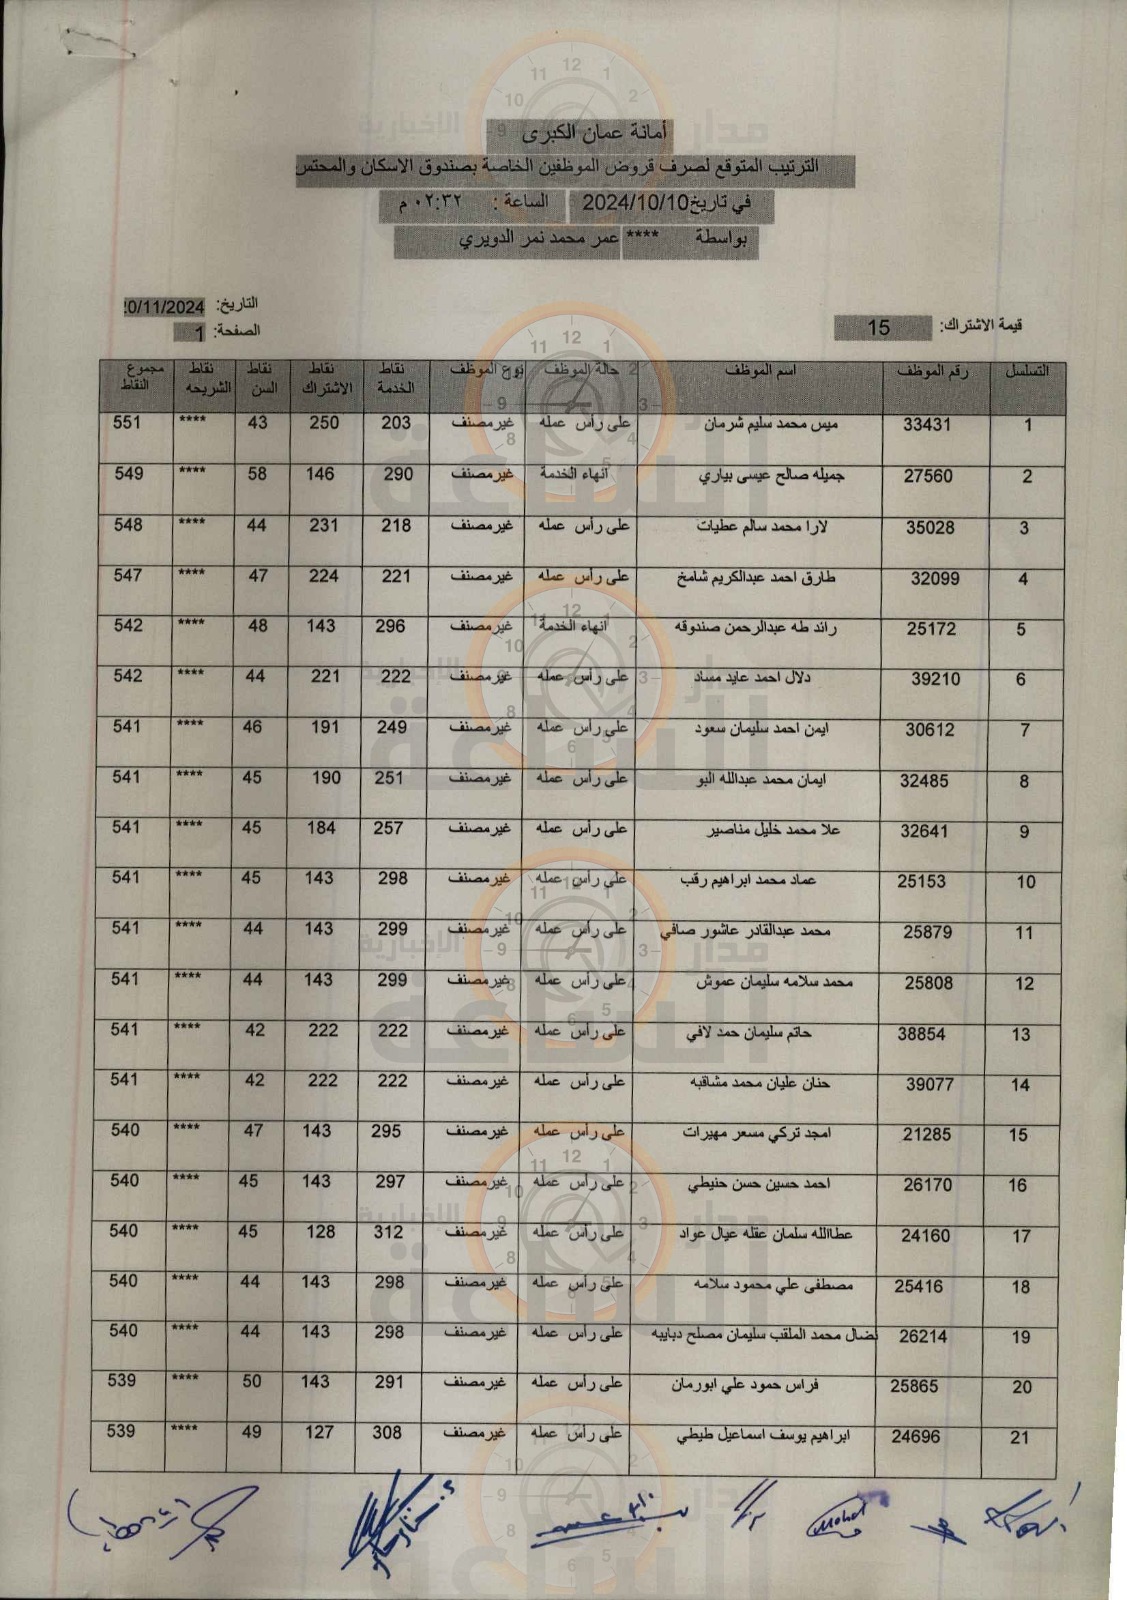 أمانة عمان الكبرى
الترتيب المتوقع لصرف قروض الموظفين الخاصة بصندوق الاسكان والمحتس
في تاريخ2024/10/10 الساعة : ٠٢:٣٢ م
بواسطة **** عمر محمد نمر الدويري
التاريخ: 20/11/2024
قيمة الاشتراك: 15 الصفحة: 1
التسلسل رقم الموظف اسم الموظف حالة الموظف نوع الموظف نقاط الخدمة نقاط الاشتراك نقاط السن نقاط الشريحه مجموع النقاط
1 33431 ميس محمد سليم شرمان على رأس عمله غيرمصنف 203 250 43 **** 551
2 27560 جميله صالح عيسى بياري انهاء الخدمة غيرمصنف 290 146 58 **** 549
3 35028 لارا محمد سالم عطيات على رأس عمله غيرمصنف 218 231 44 **** 548
4 32099 طارق احمد عبدالكريم شامخ على رأس عمله غيرمصنف 221 224 47 **** 547
5 25172 رائد طه عبدالرحمن صندوقه انهاء الخدمة غيرمصنف 296 143 48 **** 542
6 39210 دلال احمد عايد مساد على رأس عمله غيرمصنف 222 221 44 **** 542
7 30612 ايمن احمد سليمان سعود على رأس عمله غيرمصنف 249 191 46 **** 541
8 32485 ايمان محمد عبدالله البو على رأس عمله غيرمصنف 251 190 45 **** 541
9 32641 علا محمد خليل مناصير على رأس عمله غيرمصنف 257 184 45 **** 541
10 25153 عماد محمد ابراهيم رقب على رأس عمله غيرمصنف 298 143 45 **** 541
11 25879 محمد عبدالقادر عاشور صافي على رأس عمله غيرمصنف 299 143 44 **** 541
12 25808 محمد سلامه سليمان عموش على رأس عمله غيرمصنف 299 143 44 **** 541
13 38854 حاتم سليمان حمد لافي على رأس عمله غيرمصنف 222 222 42 **** 541
14 39077 حنان عليان محمد مشاقبه على رأس عمله غيرمصنف 222 222 42 **** 541
15 21285 امجد تركي مسعر مهيرات على رأس عمله غيرمصنف 295 143 47 **** 540
16 26170 احمد حسين حسن حنيطي على رأس عمله غيرمصنف 297 143 45 **** 540
17 24160 عطاالله سلمان عقله عيال عواد على رأس عمله غيرمصنف 312 128 45 **** 540
18 25416 مصطفى علي محمود سلامه على رأس عمله غيرمصنف 298 143 44 **** 540
19 26214 نضال محمد الملقب سليمان مصلح دبايبه على رأس عمله غيرمصنف 298 143 44 **** 540
20 25865 فراس حمود علي ابورمان على رأس عمله غيرمصنف 291 143 50 **** 539
21 24696 ابراهيم يوسف اسماعيل طيطي على رأس عمله غيرمصنف 308 127 49 **** 539
مدار الساعة الاخبارية